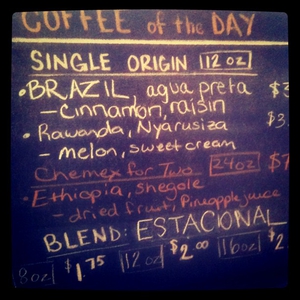 COFFEE of the DAY
SINGLE ORIGIN 12 oz
• BRAZIL, agua preta $3
- Cinnamon, raisin
• Rawanda, Nyarusiza $3.
- melon, sweet cream
Chemex for Two 24oz $7
• Ethiopia, shegole
- dried fruit, Pineapple juice
BLEND: ESTACIONAL
8oz $1.75 12oz $2.00 16oz $2.